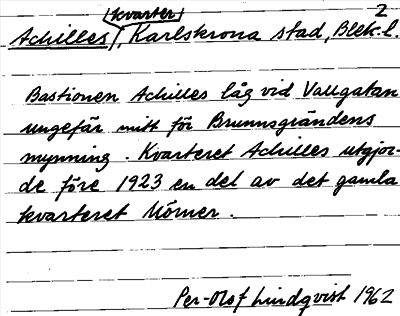 kvarter 2
Achilles, Karlskrona stad, Blek.l.
Bastionen Achilles låg vid Vallgatan
ungefär mitt för Brunnsgrändens
mynning. Kvarteret Achilles utgjor-
de före 1923 en del av det gamla
kvarteret Mörner.
Per-Olof Lindqvist 1962